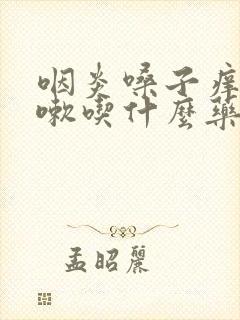 咽炎嗓子痒
嗽喫什麼藥
孟昭麗